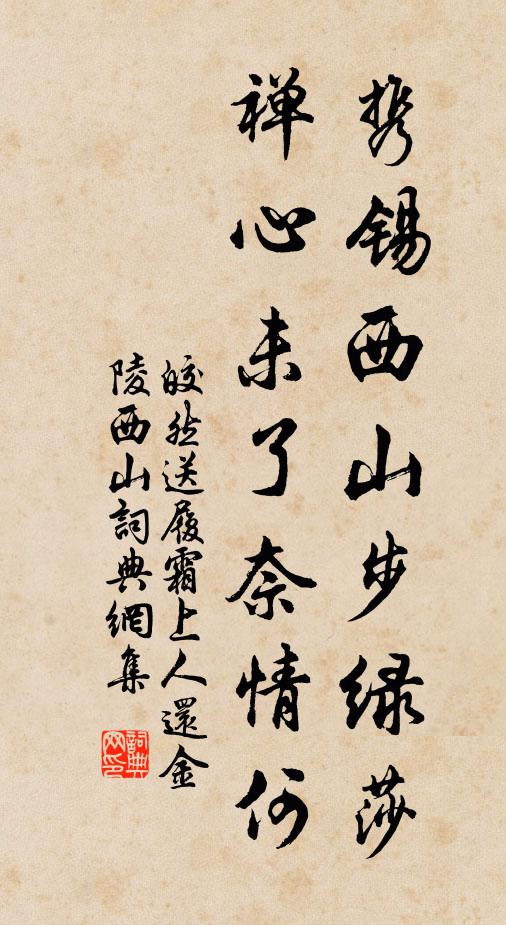 携锡西山步绿莎
禅心未了奈情何
皎然送履霜上人還金
陵西山詞典網集
詞典
网印